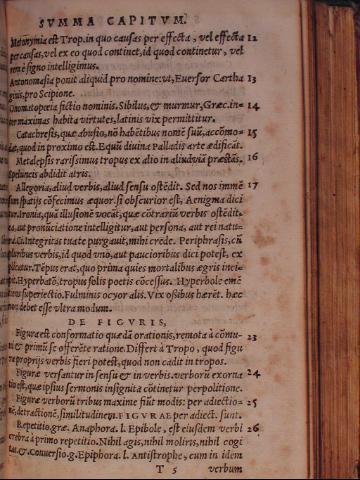 SVMMA CAPITVM.
Metonymia est Trop. in quo causas per effecta, vel effecta 12
per causas, vel ex eo quod continet, id quod continetur, vel
signo intelligimus.
Antonomasia ponit aliquid pro nomine: vt, Euersor Cartha 13
ginis, pro Scipione.
Onomatopœia fictio nominis. Sibilus, & murmur, Græc. in- 14
ter maximas habita virtutes, latinis vix permittitur.
Catachresis, quæ abusio, nō habētibus nomē suū, accōmo- 15
dat, quod in proximo est. Equū diuina Palladis arte ædificāt.
Metalepsis rarissimus tropus ex alio in aliud viā præstās. 16
Speluncis abdidit atris.
Allegoria, aliud verbis, aliud sensu ostēdit. Sed nos immē 17
sum spatijs cōfecimus æquor. si obscurior est, Aenigma dici
tur. Ironia, quā illusionē vocāt, quæ cōtrariū verbis ostēdit.
aut pronūciatione intelligitur, aut persona, aut rei natu-
ra. C. Integritas tua te purgauit, mihi crede. Periphrasis, cū
pluribus verbis, id quod vno, aut paucioribus dici potest, ex
plicatur. Tēpus erat, quo prima quies mortalibus ægris inci-
pit. Hyperbatō, tropus solis poetis cōcessus. Hyperbole emē
tiēs superiectio. Fulminis ocyor alis. Vix ossibus hærēt. hæc
non debet esse vltra modum.
DE FIGVRIS,
Figura est conformatio quædā orationis, remota à cōmu- 23
ni & primū se offerēte ratione. Differt à Tropo, quod figu
ra proprijs verbis fieri potest, quod non cadit in tropos.
Figuræ versantur in sensu & in verbis. verborū exorna 24
tio est, quæ ipsius sermonis insignita cōtinetur perpolitione.
Figuræ verborū tribus maximè fiūt modis: per adiectio- 25
nē, detractionē, similitudinem. FIGVRAE per adiect. sunt.
Repetitio. græ. Anaphora. l. Epibole, est eiusdem verbi 26
crebra à primo repetitio. Nihil agis, nihil moliris, nihil cogi
tas. & Conuersio. g. Epiphora. l. Antistrophe, cum in idem
T 5 verbum